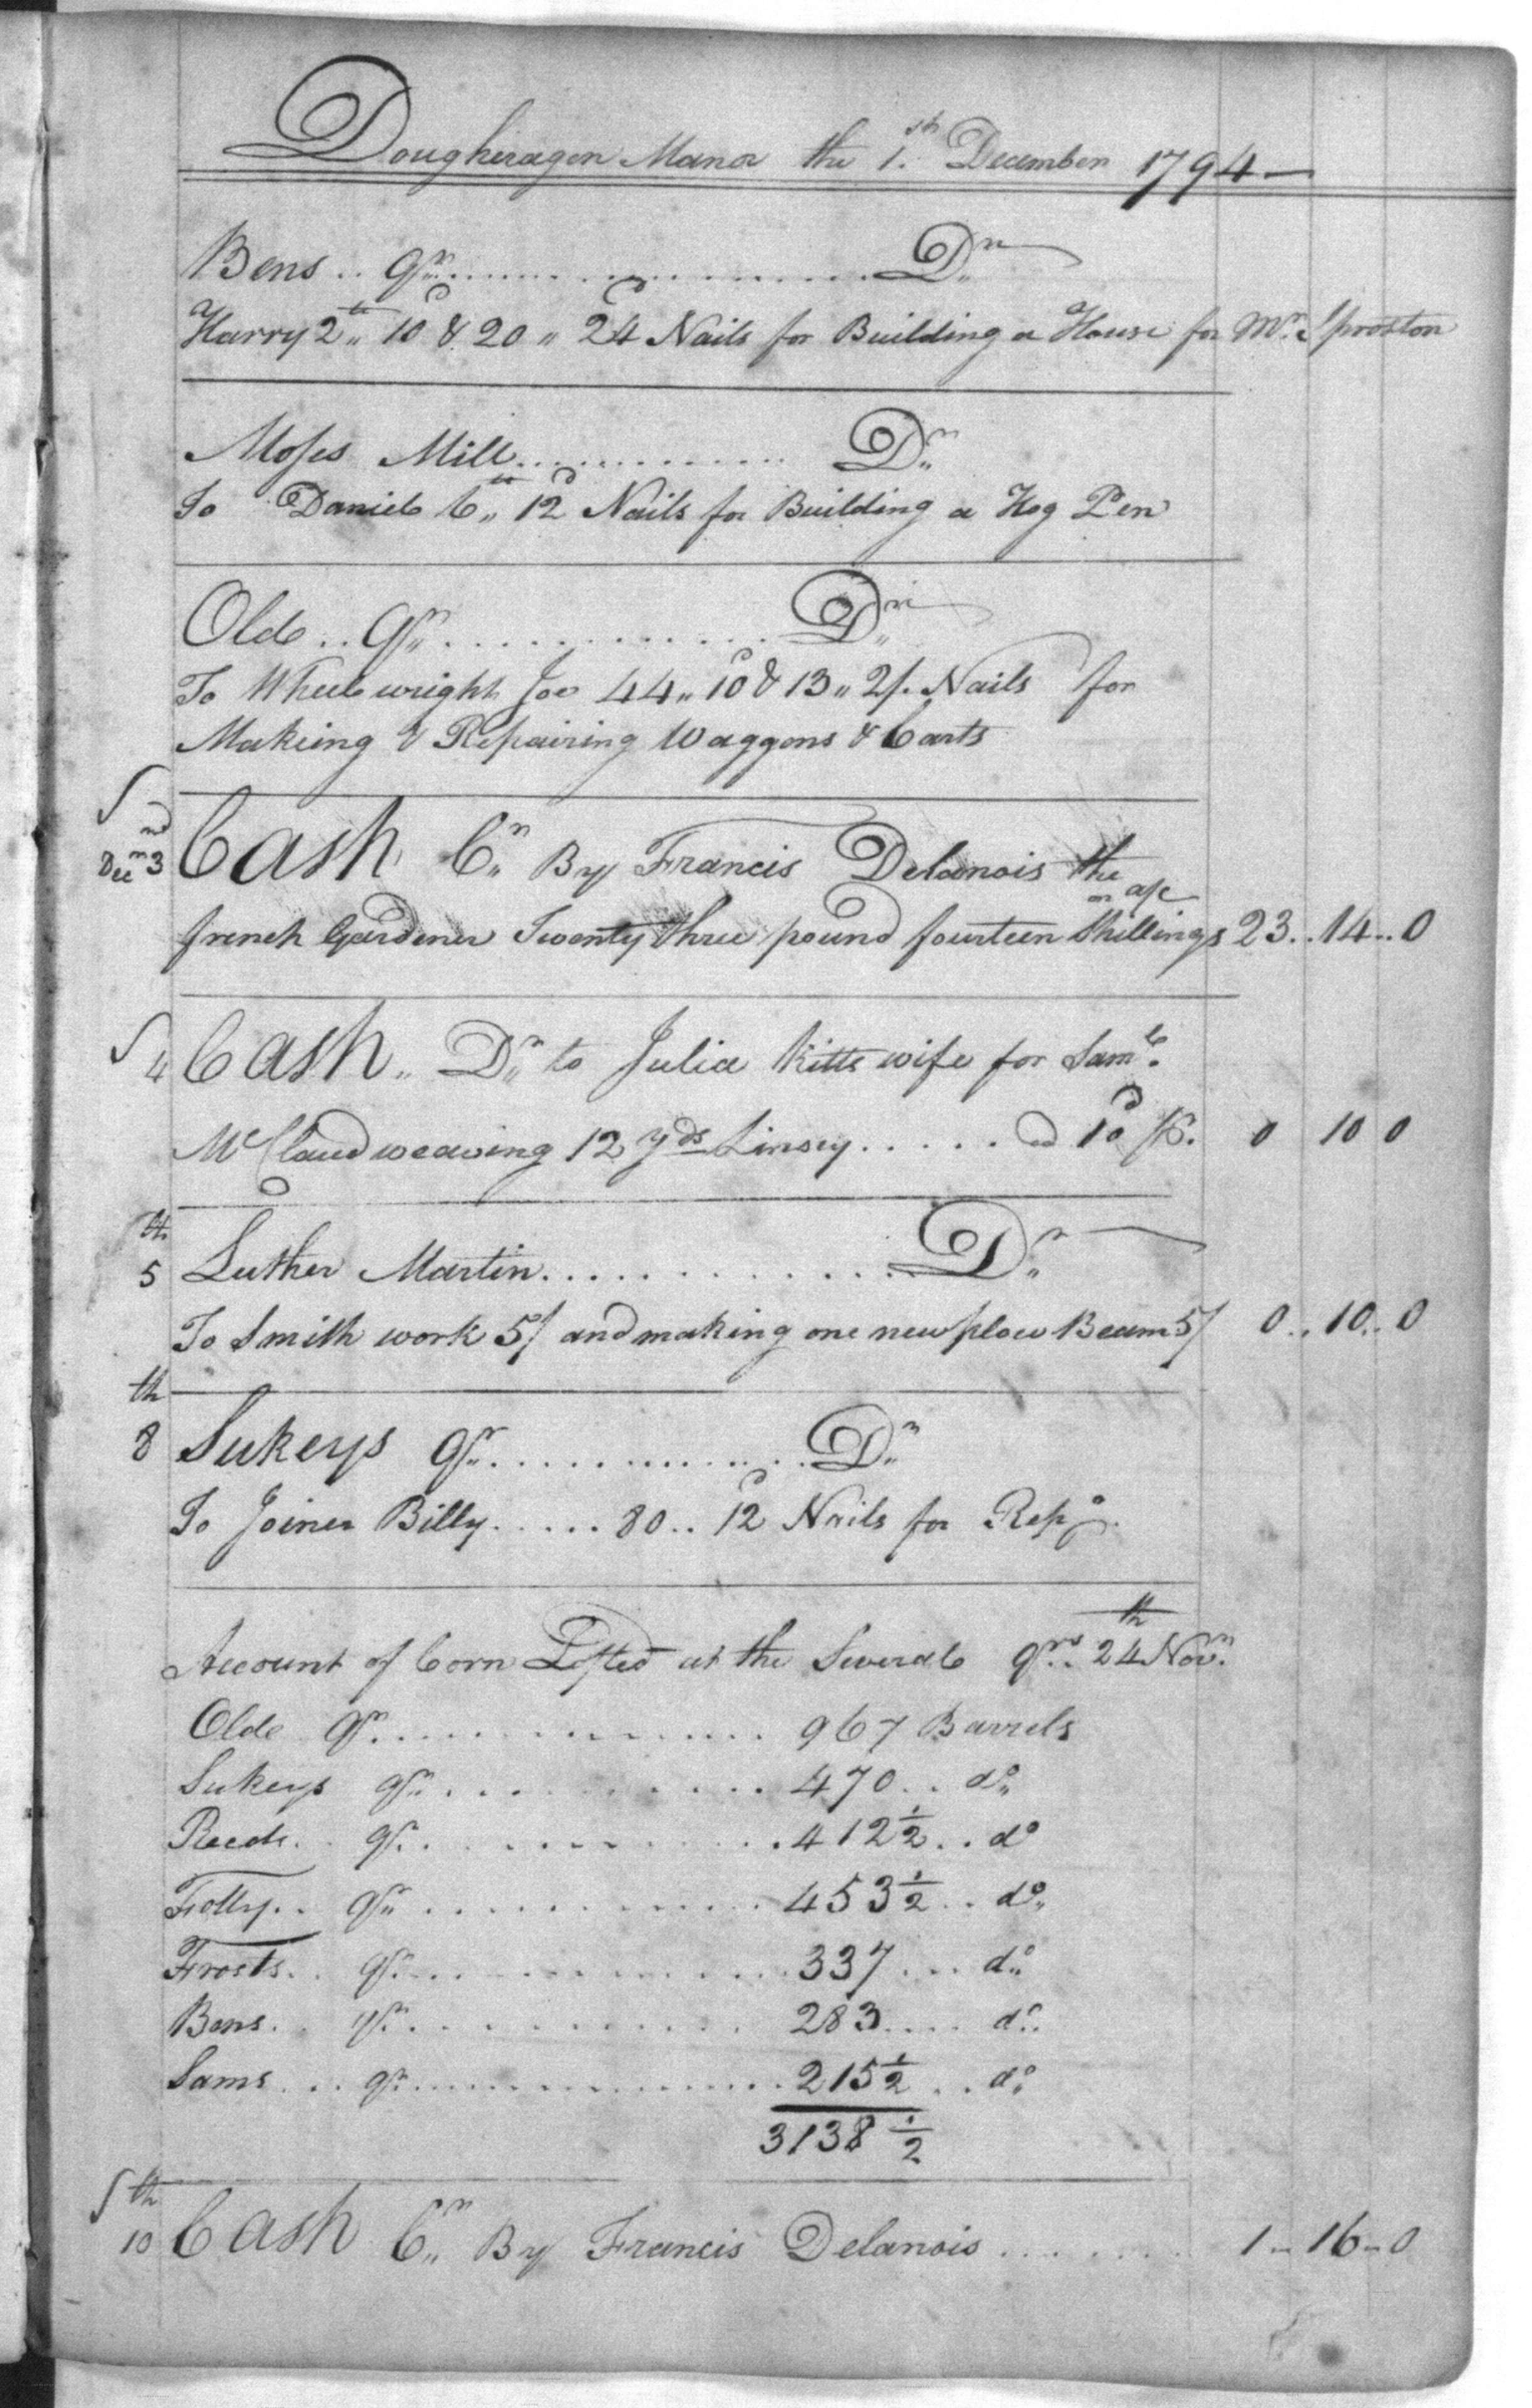 Dougheragen Manor the 1st December 1794
Bens .. Qr ........ Dr
Harry 2 lb 10d & 20 " 24d Nails for Building a House for Mr Sproston
Moses Mill ........ Dr
To Daniel 6 lb 12d Nails for Building a Hog Pen
Old .. Qr ........ Dr
To Wheelwright Joe 44 " 10d & 13 " 2/. Nails for
Makeing & Repairing Waggons & Carts
Decr 3nd Cash Cr By Francis Delanois the
on a/c
french Gardener Twenty three pound fourteen Shillings 23 .. 14 .. 0
4 Cash Dr to Julia Kitts wife for Saml
McClaud weaving 12 yds Linsey ..... 10d 0 10 0
5th Luther Martin ........ Dr
To Smith work 5/ and making one new plow Beam 5/ 0 .. 10 .. 0
8th Sukeys Qr ........ Dr
To Joiner Billy ..... 80 .. 12d Nails for Repg
Account of Corn Lofted at the Several Qrs 24th Novr
Old Qr ........ 967 Barrels
Sukeys Qr ........ 470 .. do
Reeds .. Qr ........ 412 1/2 .. do
Folly .. Qr ........ 453 1/2 .. do
Frosts .. Qr ........ 337 ... do
Bens .. Qr ........ 283 .... do
Sams ... Qr ........ 215 1/2 .. do
3138 1/2
10th Cash Cr By Francis Delanois ........ 1 - 16 - 0